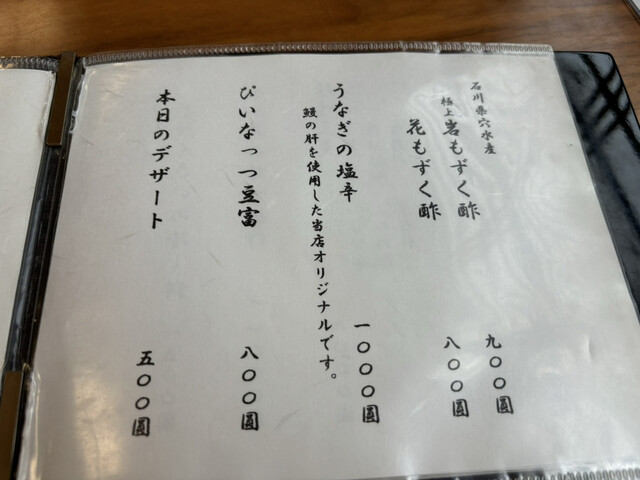 石川県穴水産
極上岩もずく酢 九〇〇圓
花もずく酢 八〇〇圓
うなぎの塩辛 一〇〇〇圓
鰻の肝を使用した当店オリジナルです。
ぴいなっつ豆富 八〇〇圓
本日のデザート 五〇〇圓